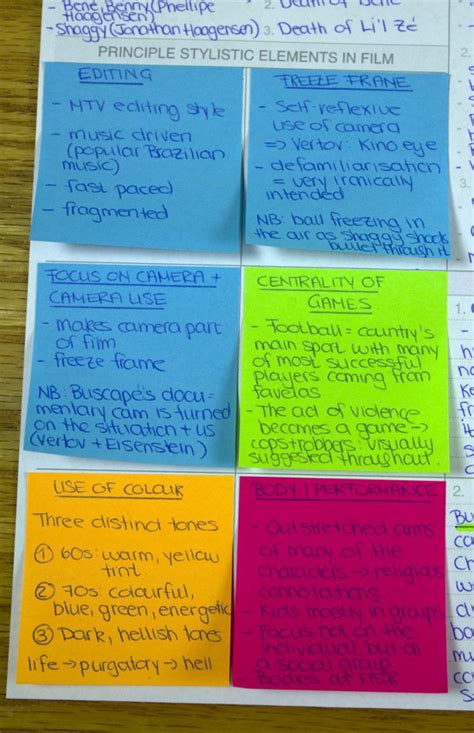 - Bené, Benny (Phellipe
Haagensen)
- Shaggy (Jonathan Haagensen)
2. Death of Bené
3. Death of Li'l Zé
PRINCIPLE STYLISTIC ELEMENTS IN FILM
EDITING
- MTV editing style
- music driven
(popular Brazilian
music)
- fast paced
- fragmented
FREEZE FRAME
- Self-reflexive
use of camera
=> Vertov: Kino eye
- defamiliarisation
= very ironically
intended
NB: ball freezing in
the air as Shaggy shoots
bullet through it
FOCUS ON CAMERA +
CAMERA USE
- makes camera part
of film
- freeze frame
NB: Buscapé's docu-
mentary cam is turned
on the situation + us
(Vertov + Eisenstein)
CENTRALITY OF
GAMES
- Football = country's
main sport with many
of most successful
players coming from
favelas
- The act of violence
becomes a game →
cops + robbers: visually
suggested throughout
USE OF COLOUR
Three distinct tones
① 60s: warm, yellow
tint.
② 70s: colourful,
blue, green, energetic
③ Dark, hellish tones
life → purgatory → hell
BODY / PERFORMANCE
- Outstretched arms
of many of the
characters → religious
connotations
- Kids mostly in groups
- Focus not on the
individual, but on
a social group
- Bodies at risk